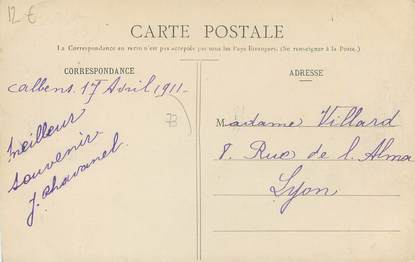 12 €
CARTE POSTALE
La Correspondance au recto n'est pas acceptée par tous les Pays Étrangers. (Se renseigner à la Poste.)
CORRESPONDANCE
Calbens. 17 Avril 1911-
Meilleur
souvenir
J. Chavanel.
73
ADRESSE
Madame Villard
8. Rue de l. Alma
Lyon